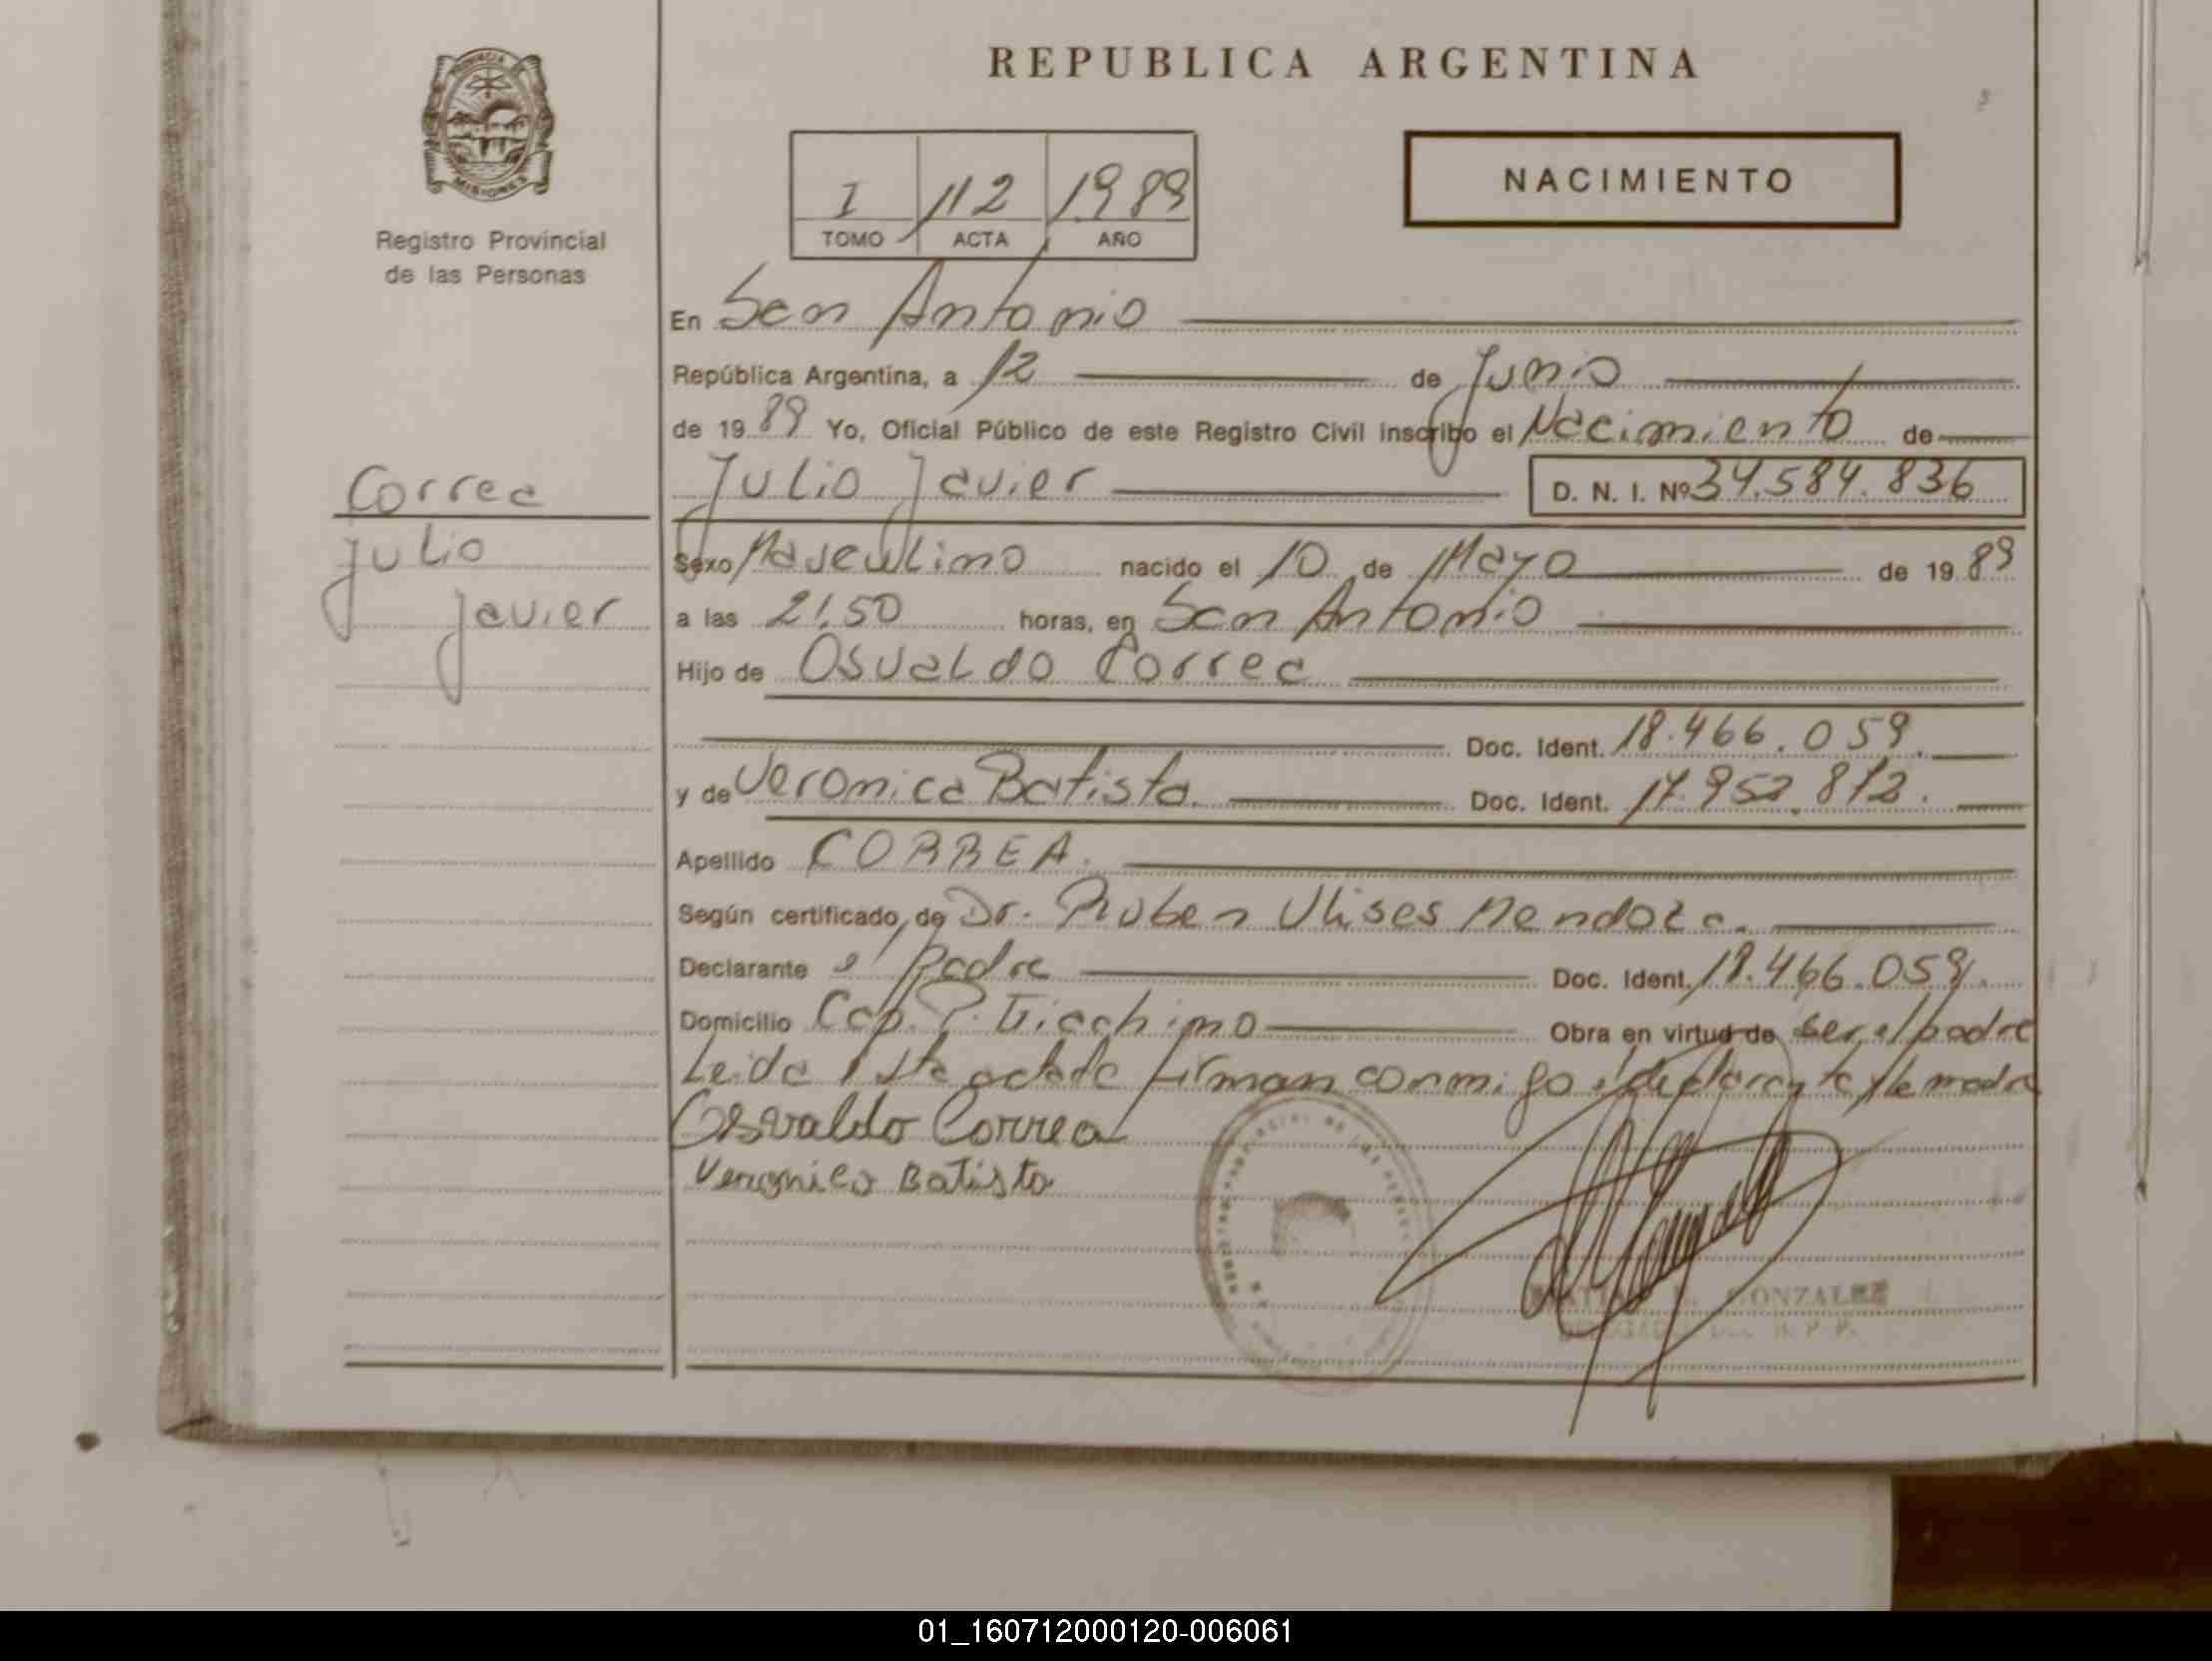 REPUBLICA ARGENTINA
PROVINCIA
MISIONES
Registro Provincial
de las Personas
NACIMIENTO
I 112 1989
TOMO ACTA AÑO
En San Antonio
República Argentina, a 12 de Junio
de 1989 Yo, Oficial Público de este Registro Civil inscribo el Nacimiento de
Correa
Julio
Javier
Julio Javier D. N. I. Nº 34.584.836
Sexo Masculino nacido el 10 de Mayo de 1989
a las 21.50 horas, en San Antonio
Hijo de Osvaldo Correa
Doc. Ident. 18.466.059.
y de Veronica Batista. Doc. Ident. 17.952.812.
Apellido CORREA.
Según certificado de Dr. Ruben Ulises Mendoza.
Declarante el Padre Doc. Ident. 18.466.059.
Domicilio Cap. P. Giachino Obra en virtud de ser el padre
Leida esta acta la firman conmigo el declarante y la madre
Osvaldo Correa
Veronica Batista
GONZALEZ
R. P. P.
01_160712000120-006061